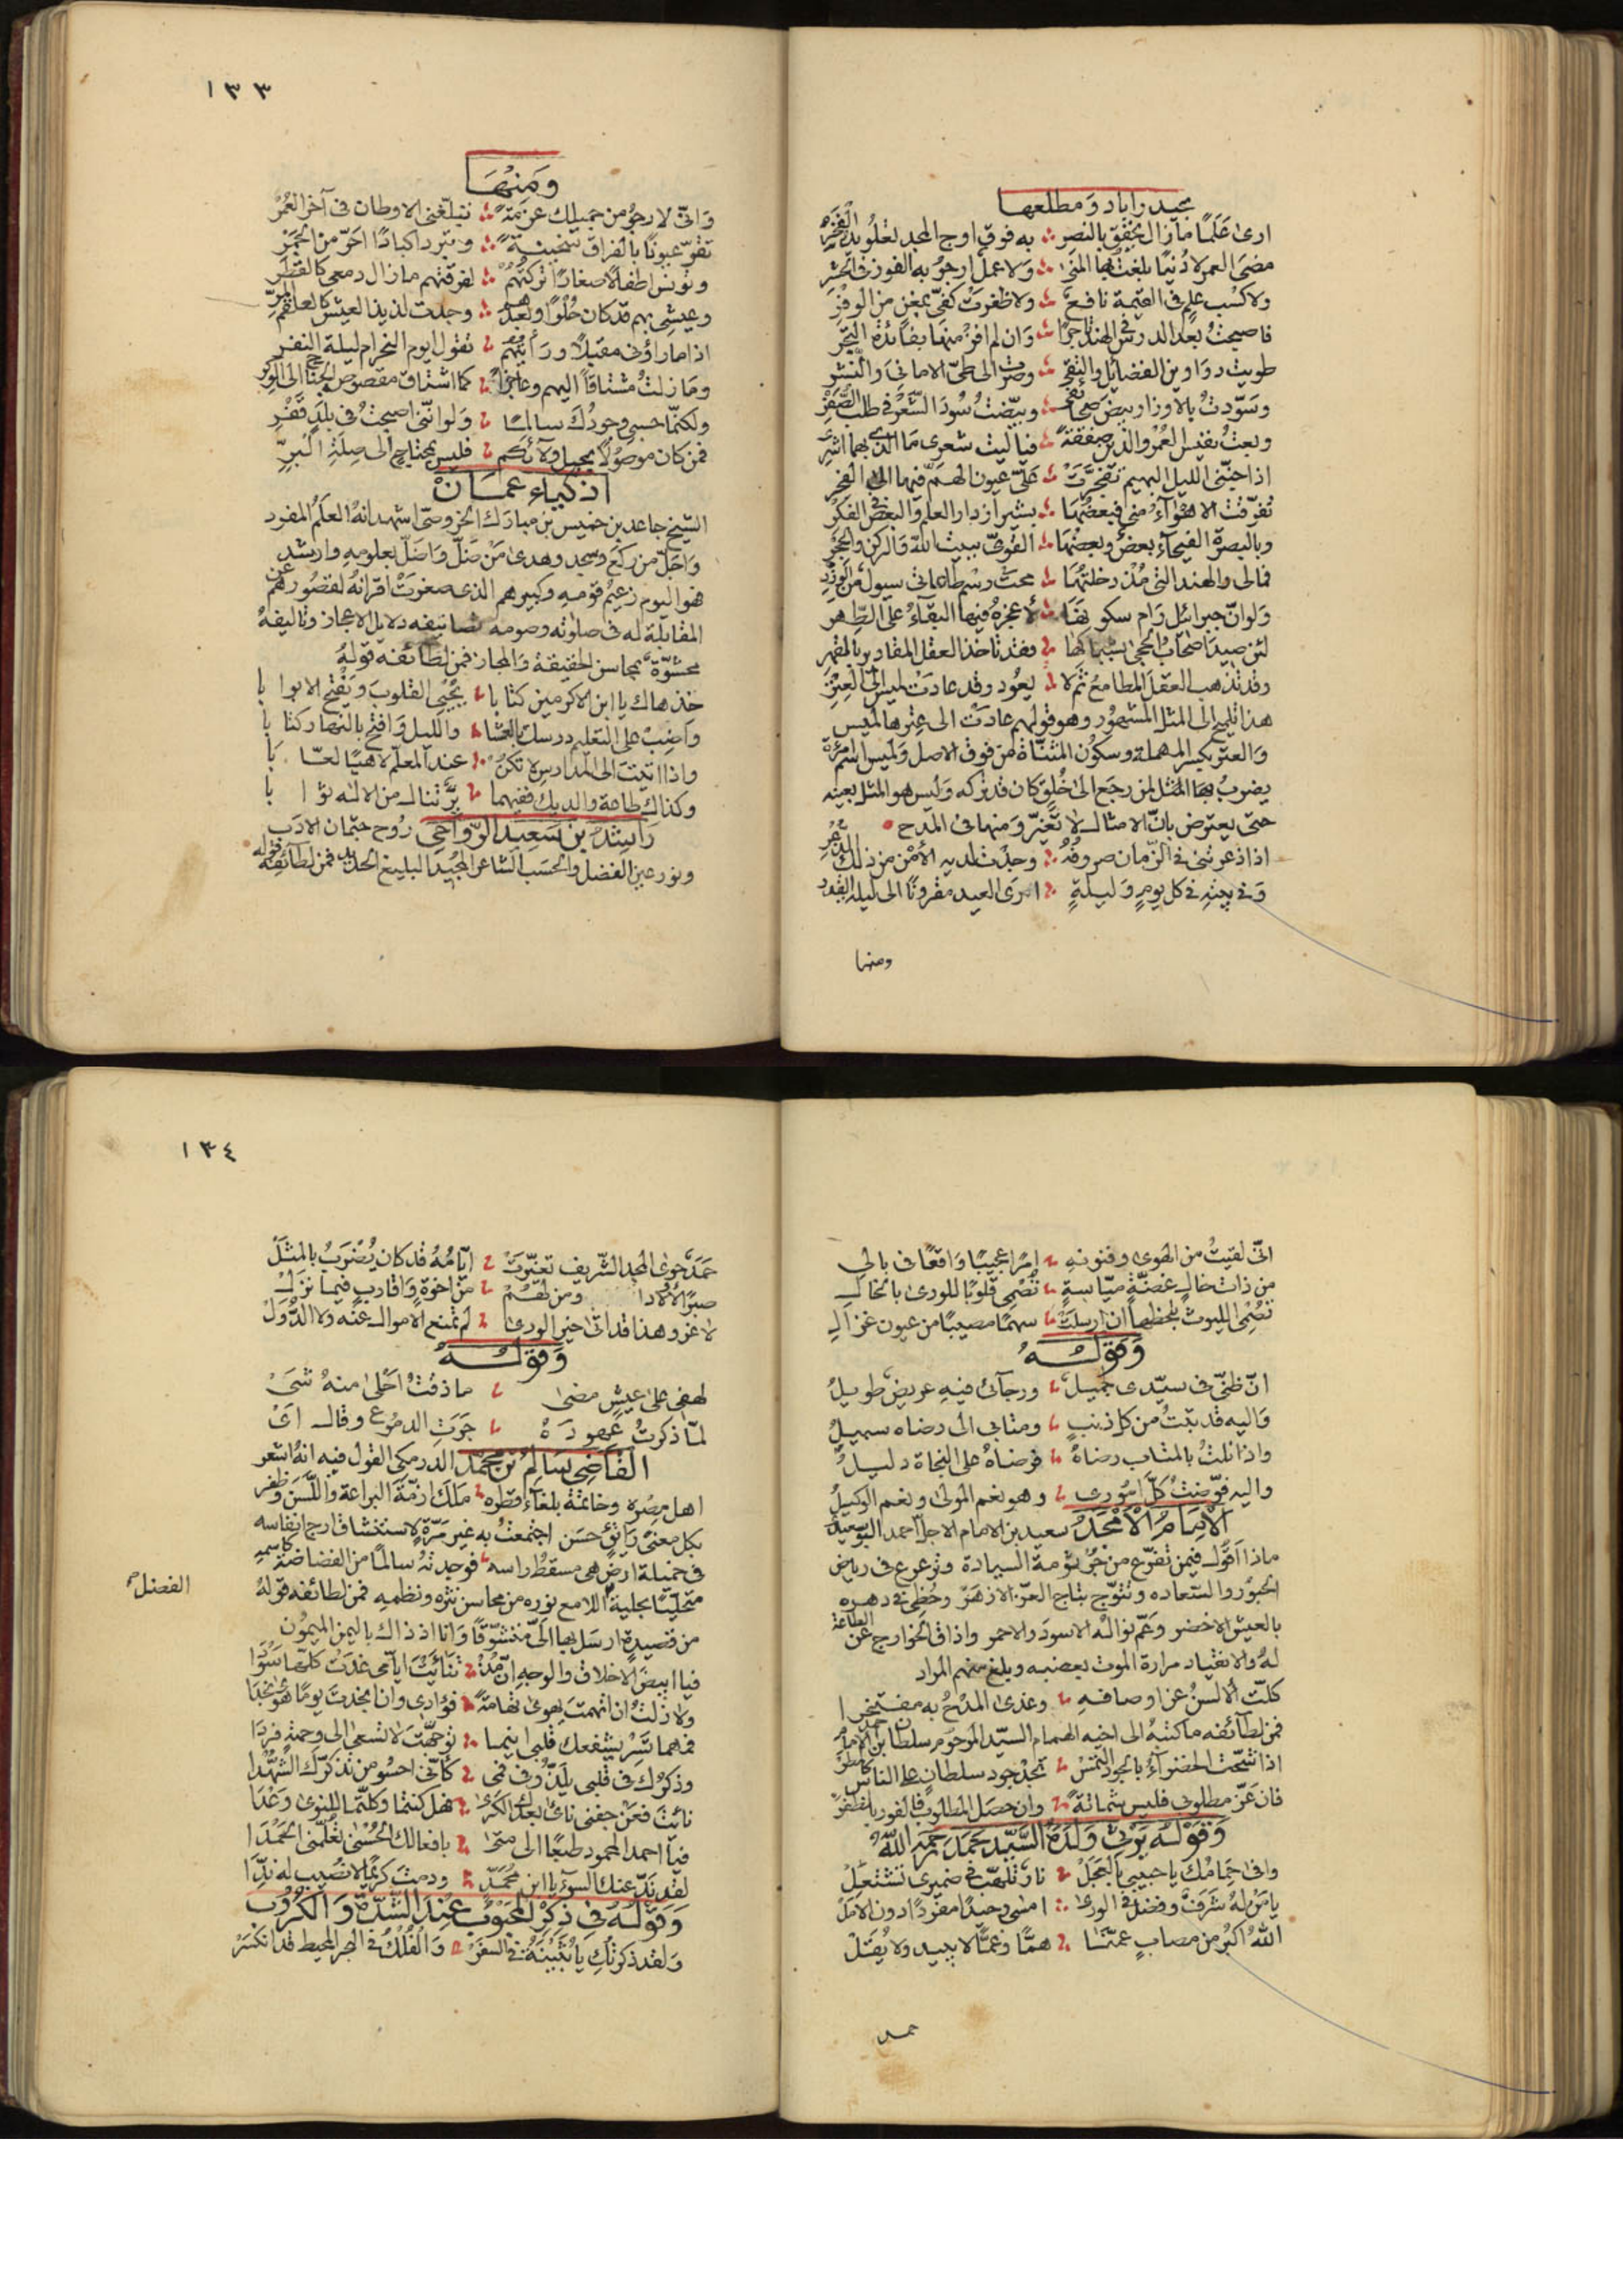 بحيدراباد ومطلعها
ارى عَلَمًا مازال يخفق بالنصر به فوق اوج المجد تعلو يد الفخر
مضى العمر لا دُنيا بلغتُ بها المنى ولا عمل ارجو به الفوز في الحشر
ولا كسْب علم في القيمة نافع ولا ظفرتْ كفّي بمغنٍ من الوفْر
فاصبحتُ بعد الدرس في الهند تاجرًا وان لم افز منها بفائدة التجر
طويت دواوين الفضائل والتقى وصرت الى طيّ الاماني والنشر
وسوّدتُ بالاوزار بيض صحائفي وبيّضتُ سُودَ الشّعْر في طلب الصّفْر
وبعتُ نفيس العُمْر والدين صفقةً فياليت شعرى ما الذي بهما اشرى
اذا جنّنى الليل البهيم تفجّرتْ عَلَيّ عيون الهمّ فيها الى الفجر
تفرّقت الاهوآءُ منى فبعضُها بشيراز دار العلم والبعض في الفكر
وبالبصرة الفيحآء بعضٌ وبعضها القوىّ ببيت الله والركن والحِجْر
فمالى والهند التي مُذ دخلتُها محت رسْم طاعاتي سيول من الوزر
ولوانّ جبرائيل رام سكونها لأعجزهُ فيها البقآءُ على الطّهر
لئن صيد اصحاب الحجى بشباكها فقد تاخذ العقل المقادير بالقهر
وقد تذهب العقلَ المطامعُ ثمّ لا يعُود وقد عادَتْ لميس الى العِتر
هذا تلميح الى المثل المشهُور وهو قولهم عادَتْ الى عِتْرها لميس
والعتر بكسر المهملة وسكون المثنّاة من فوق الاصل ولميس اسم امرأة
يضربُ بها المثل لمن رجَع الى خُلقٍ كان قد تركه وليس هو المثل بعينه
حتى يعترض بانّ الامثال لا تُغيّر ومنها في المدح
اذا ذعرتنى في الزّمان صروفُهُ وجدْتُ لديه الأمْن من ذلك الذّعر
وَفي بيته في كل يومٍ وليلةٍ ارى العيد مقرونًا الى ليلة القدر
ومنها
١٣٣
ومنها
وَانّى لارجُو من جميلك عزمَةً تبلّغنى الاوطان في آخر العُمْر
تقرّ عيونًا بالفراق سخينةً وتبرد اكبادًا احَرّ من الجَمْر
وتؤنس اطفالاً صغارًا تركتُهُمْ لفرقتهم مازال دمعى كالقطر
وعيشى بهم قد كان حُلوًا وبعدهم وجدت لذيذ العيش كالعلقم المرّ
اذا ما راؤنى مقبلاً ورَأيتُهُم نقُول ايوم النحر ام ليلة النفر
ومَا زلتُ مشتاقًا اليهم وعاجزًا كما اشتاق مقصوص الجناح الى الوكر
ولكنّما حسبى وجودُك سالمًا ولو انّنى اصبحتُ في بلدٍ قَفْر
فمن كان موصُولاً بحبل ولآئكم فليس بمحتاجٍ الى صِلَةِ البرّ
اذكياء عمَان
الشيخ جاعد بن خميس بن مبارك الخروصى اشهد انهُ العلَمُ المفرد
وَاجَلّ من ركع وسجد وهدى من ضَلّ وَاضَلّ بعلومه وارشد
هو اليوم زعيم قومه وكبيرهم الذى صغرَتْ اقرانهُ لقصورهم عن
المقابلة له في صلوته وصومه تصانيفه دلايل الاعجاز وتاليفهُ
محشوّة بمحاسن الحقيقة والمجاز فمن لطآئفه قولهُ
خذ هاك يا ابن الاكرمين كتابا يُحْيِى القلوبَ ويَفْتح الابوابا
وَاضِبْ على التعليم درسك بالعشا والليل وافتح بالنهار كتابا
واذا اتيتَ الى المدارس لا تكنْ عند المعلّم لاهيًا لعّابًا
وكذاك طاعة والديك ففيهما بِرٌّ تنال من الاله ثوابا
رَاشد بن سَعيد الرّوآحى رُوح جثمان الادَب
ونور عين الفضل والحسَب الشاعر المجيد البليغ فمن لطآئفه قوله
انّى لقيتُ من الهوى وفنونهِ امرًا عجيبًا وَاقعًا في بالى
من ذات خالٍ غضّةٍ ميّاسةٍ تُصْمِى قلوبًا للورى بالخال
تصْمِى الليوث بلحظها ان ارسلتْ سهمًا مصيبًا من عيون غزال
وَقولُهُ
انّ ظنّى في سيّدى جميل ورجآئى فيهِ عريض طويلُ
وَاليه قد تبتُ من كل ذنبٍ ومتابى الى رضاه سبيلُ
واذا نلتُ بالمتاب رضاهُ فرضاهُ على النجاة دليلُ
واليه فوّضتُ كلّ امُورى وهو نعم المولى ونعم الوكيلُ
الامام الأمْجدُ سعيد بن الامام الاجلّ احمد البوسعيدى
ماذا اقول فيمن تفرّع من جُرثومة السيادة وترعرع في رياض
الحبُور والسّعاده وتتوّج بتاج العزّ الازهر وحُظِى في دهره
بالعيش الاخضر وعَمّ نوالهُ الاسود والاحمر واذاق الخوارج عن الطاعة
لهُ والانقياد مرارة الموت بعضبه وبلغ منهم المراد
كلّت الالسنُ عن اوصافهِ وغدى المدْحُ به مفتخرا
فمن لطآئفه ما كتبهُ الى اخيه الهمام السيّد المرحُوم سلطان بن الامام احمد
اذا شحّت الخضرآءُ بالجود التمسْ تجدْ جود سلطانٍ على الناس كالمطر
فان عَزّ مطلوبى فليس شماتةً وان حصَل المطلوب فالفوز بالظفر
وَقولُهُ يرثى ولدهُ السَّيّد حَمَد رحمه الله
وافى حِمامُك يا حبيبى بالعجَلْ نارٌ تلهّب في ضميرى تشتعلْ
يا مَنْ لهُ شرَفٌ وفضلٌ في الورى امسى وحيدًا مفردًا دون الامَلْ
اللهُ اكبرُ من مصابٍ عمّنا همًّا وغمًّا لا يبيد ولا يُقَلْ
حمد
١٣٤
حَمَدٌ حوى المجد الشّريف تعثّرتْ ايّامُهُ قد كان يُضْرَبُ بالمثَلْ
صبرًا ومن لهُمُ من اخوةٍ وَاقاربٍ فيما نزل
لا غَرْو هذا قد اتى خير الورى لم تمنع الاموال عنه ولا الدُّوَلْ
وَقولُهُ
لهفى على عيشٍ مضى ماذقتُ احْلى منهُ شَىْ
لمّا ذكرتُ عهودَهُ جرَتِ الدموع وقال اىْ
القاضى سالِم بن محمّد الدرمكى القول فيه انهُ اشعر
اهل عصره وخاتمة بلغآء قطره مَلَك ازمّة البراعة واللّسَن وظفر
بكل معنىً رَآئق حسَن اجتمعتُ به غير مَرّةٍ لاستنشاق ارج انفاسه
في خميلة ارضٍ هى مسقط راسه فوجدتهُ سالمًا من الفضاضة كاسمه
متحلّيًا بحلية اللامع نوره من محاسن نثره ونظمه فمن لطائفه قولهُ
الفضل
من قصيدةٍ ارسَل بها الىّ متشوّقًا وَانا اذ ذاك باليمن الميمُون
فيا ابيض الاخلاق والوجهِ انّ مُذْ تنآئيْتَ ايآمى غدَتْ كلّها سُوْدا
ولا زلتُ ان اتهمتَ يهوى تهامةً فؤادى وان انجدت يومًا هوى نجدا
فمهما تَسِرْ يشفعك قلبى اينما توجّهْتَ لا تسْعى الى وجهةٍ فردَا
وذكرُك في قلبى يلذّ وفى فمى كأنّى احسُو من تذكرّك الشُّهْدا
نائيْتَ فعَن جفنى نائى بعدك الكَرَى فهل كنتما وكلتما للنوى وعْدَا
فيآ احمد المحمود طبعًا الى متى بافعالك الحُسْنى تعلّمنى الحمْدَا
لقد نَدّ عنك السوءُ يا ابن محمّدٍ ودمت كريمًا لا تصيب له ندّا
وقولُهُ في ذكر المحبُوب عِند الشدّة وَالكرُوب
وَلقد ذكرتكِ يا بُثَيْنَةُ في السفَرْ وَالفُلْكُ في البحر المحيط قد انكسَرْ